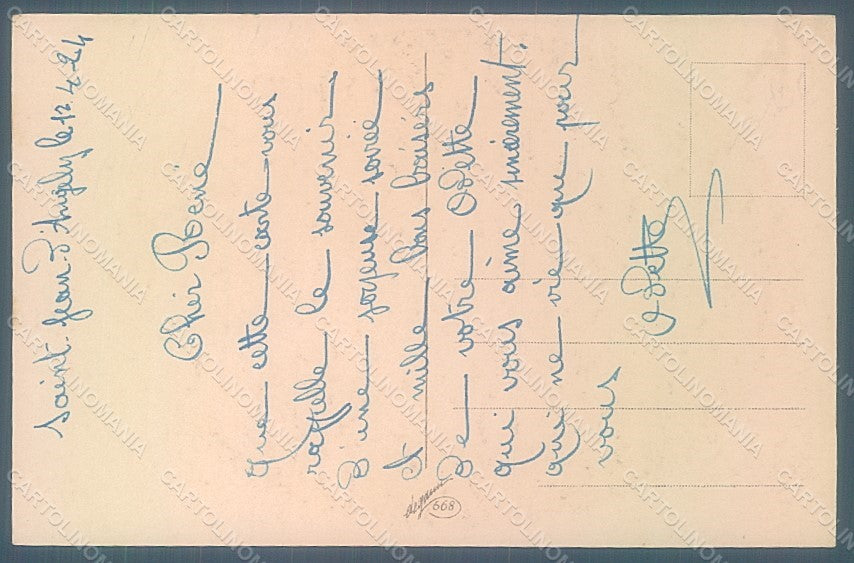 Saint-Jean-d'Angély, le 12.4.24
Cher Réné
Que cette carte vous
rapelle le souvenir
d'une joyeuse soirée
et mille bons baisers
de votre Odette
qui vous aime sincèrement.
qui ne vie que pour
vous
Odette
668
CARTOLINOMANIA